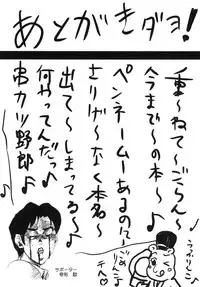 あとがきダヨ!
重〜ねて〜ごらん〜
今まで〜の本〜♪
ペンネームーあるのに〜
さりげ〜なく本名〜
出て〜しまってる〜♪
何やってんだっ♪
串カツ野郎♪
テヘ♡
サポーター